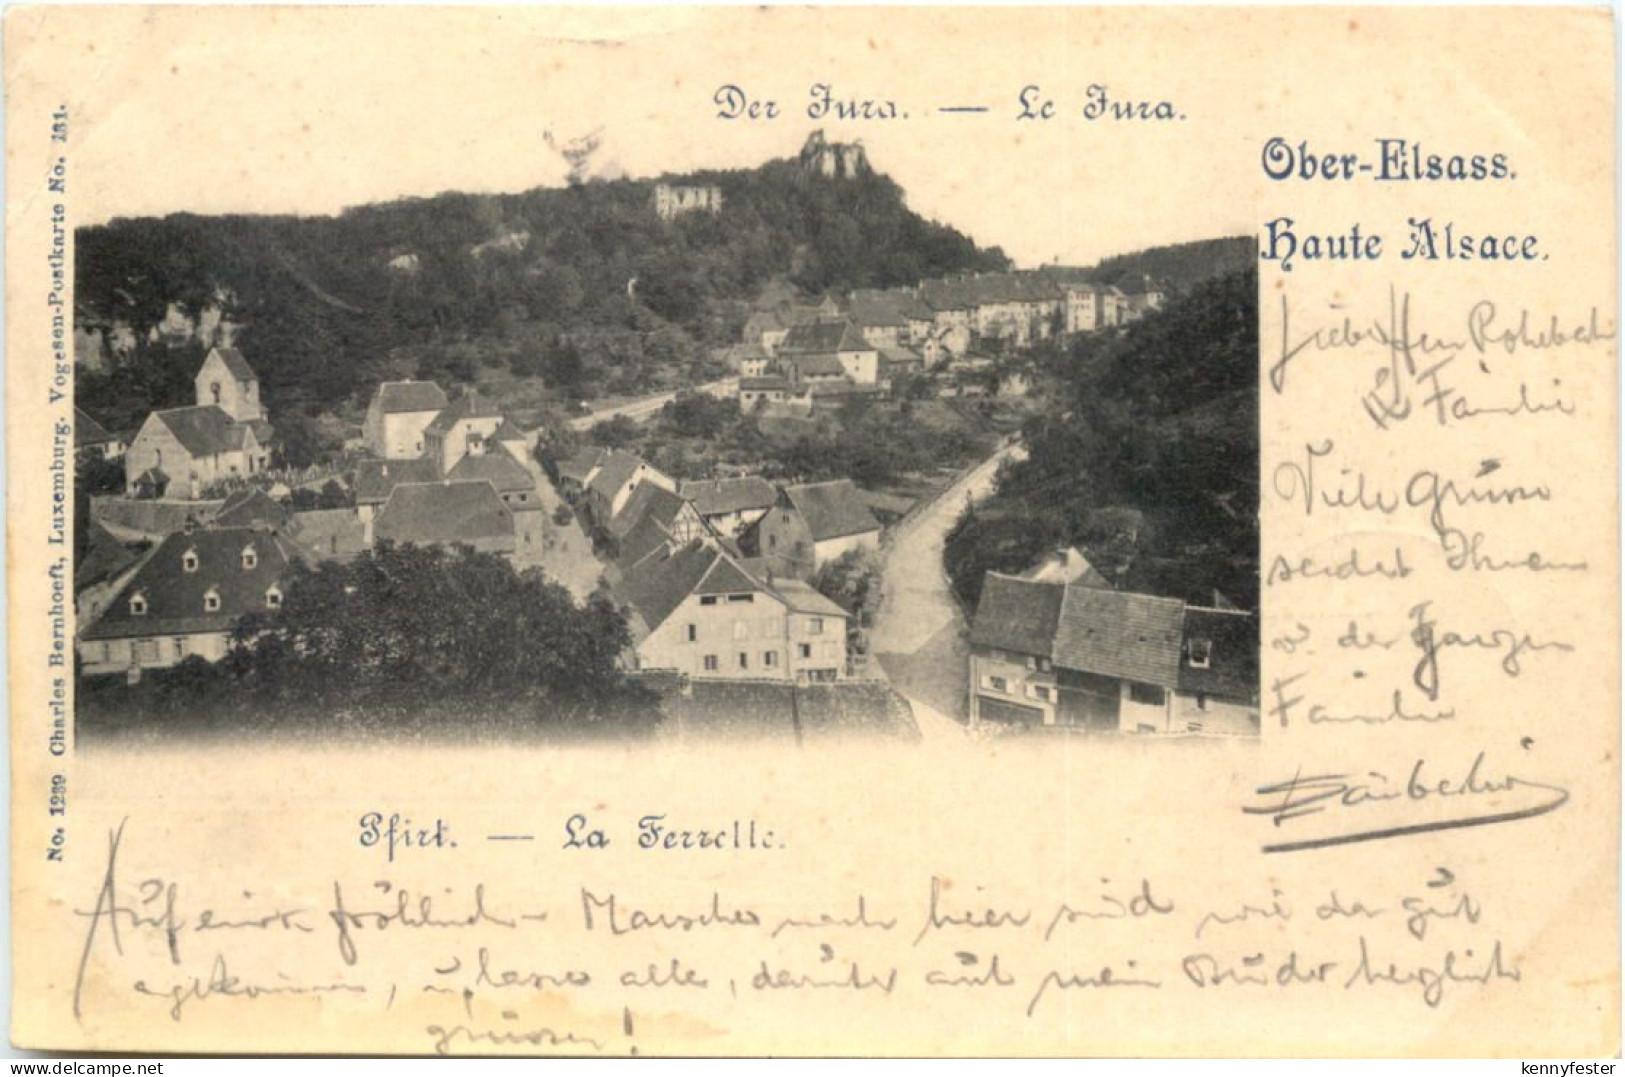 Der Jura. — Le Jura.
Ober-Elsass.
Haute Alsace.
No. 1239 Charles Bernhoeft, Luxemburg. Vogesen-Postkarte No. 131.
Lieber Herr
& Familie
Viele Grüsse
sendet Ihnen
u. der ganzen
Familie
Pfirt. — La Ferrette.
Auf einem fröhlichen Marsche nach hier sind wir da gut
angekommen, u. lasse alle, darunter auch mein Bruder herzlich
grüssen!
delcampe.net
kennyfester